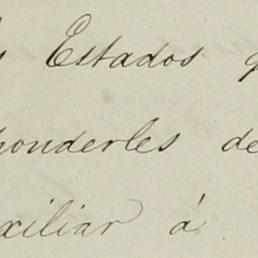 s Estados q
ponderles de
xiliar á